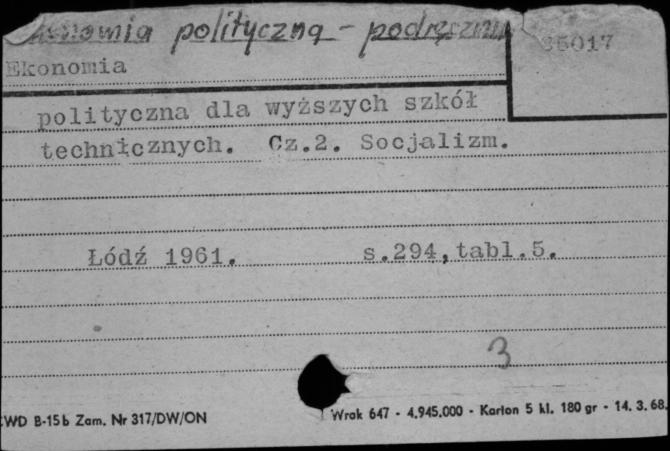 Ekonomia polityczna - podręczniki
35017
Ekonomia
polityczna dla wyższych szkół
technicznych. Cz.2. Socjalizm.
Łódź 1961. s.294,tabl.5.
3
CWD B-15b Zam. Nr 317/DW/ON Wrak 647 - 4.945.000 - Karton 5 kl. 180 gr - 14. 3. 68.